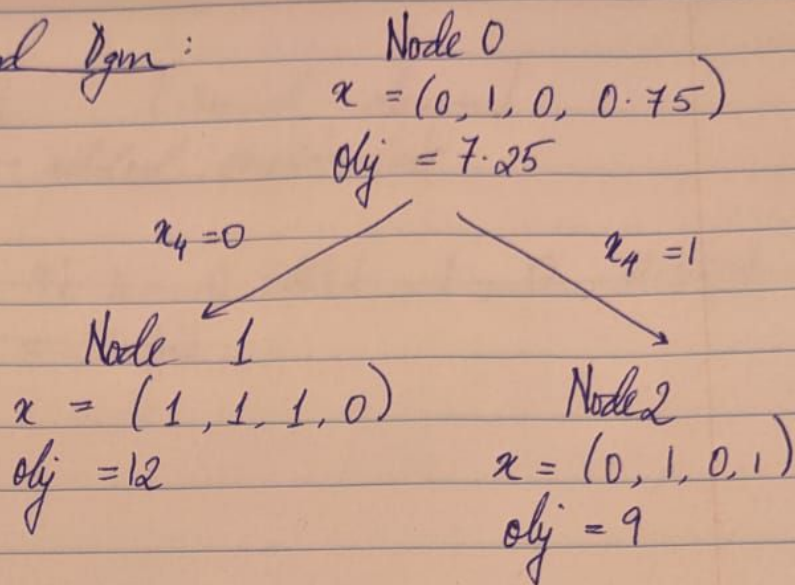 Dgm :
Node 0
x = (0, 1, 0, 0.75)
obj = 7.25
x₄ = 0
x₄ = 1
Node 1
x = (1, 1, 1, 0)
obj = 12
Node 2
x = (0, 1, 0, 1)
obj = 9